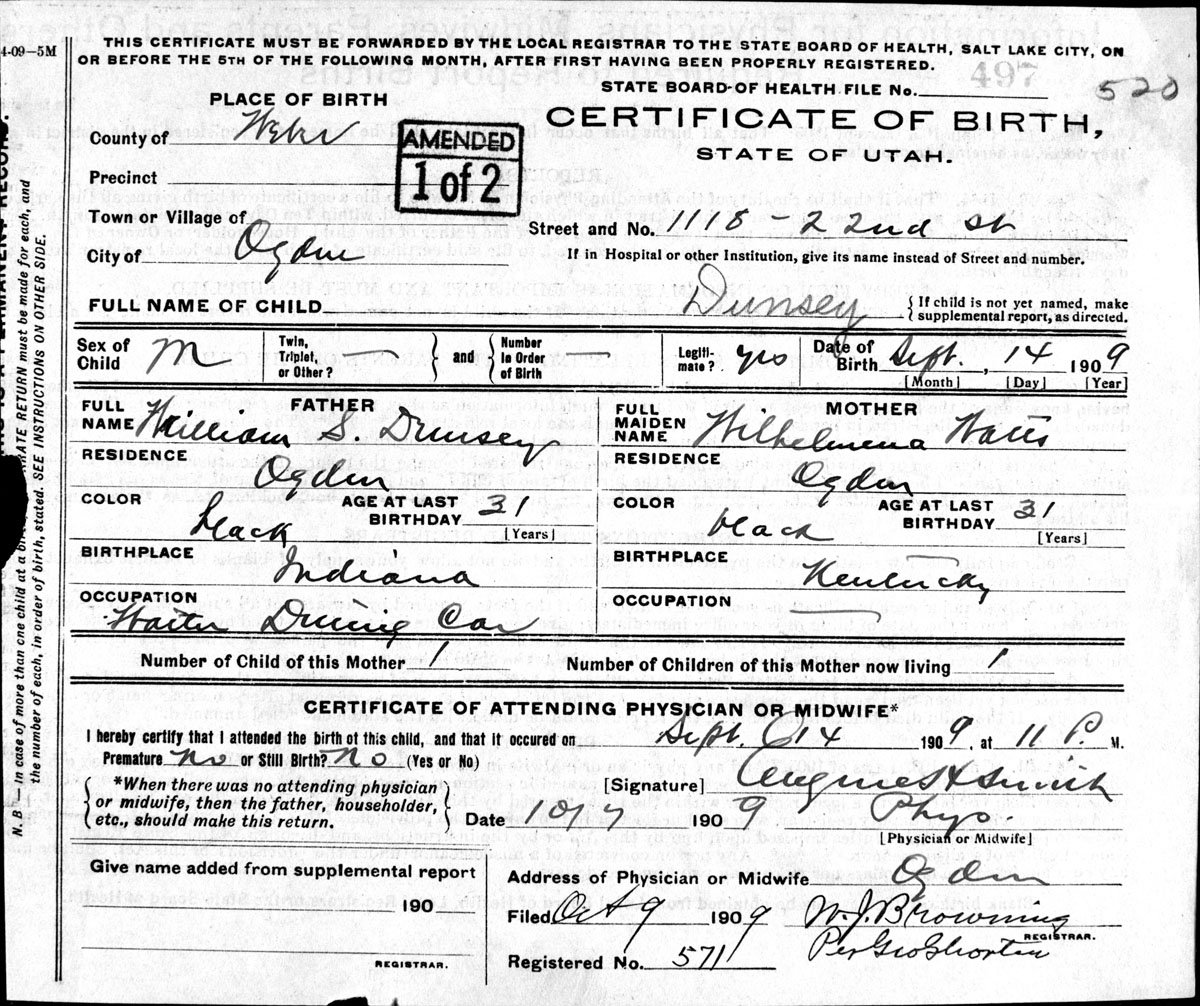 4-09-5M
THIS CERTIFICATE MUST BE FORWARDED BY THE LOCAL REGISTRAR TO THE STATE BOARD OF HEALTH, SALT LAKE CITY, ON
OR BEFORE THE 5TH OF THE FOLLOWING MONTH, AFTER FIRST HAVING BEEN PROPERLY REGISTERED.
497
STATE BOARD OF HEALTH FILE No. 520
PLACE OF BIRTH
CERTIFICATE OF BIRTH,
STATE OF UTAH.
County of Weber
AMENDED
1 of 2
Precinct
Town or Village of
Street and No. 1118-22nd st
City of Ogden
If in Hospital or other Institution, give its name instead of Street and number.
FULL NAME OF CHILD Dunsey
{If child is not yet named, make
supplemental report, as directed.
Sex of Child M
Twin, Triplet, or Other? } and { Number in Order of Birth
Legiti-mate? yes
Date of Birth Sept. , 14 1909
[Month] [Day] [Year]
FATHER
FULL NAME William S. Dunsey
RESIDENCE
Ogden
COLOR black
AGE AT LAST BIRTHDAY 31
[Years]
BIRTHPLACE
Indiana
OCCUPATION
Waiter Dining Car
MOTHER
FULL MAIDEN NAME Wilhelmena
RESIDENCE
Ogden
COLOR black
AGE AT LAST BIRTHDAY 31
[Years]
BIRTHPLACE
Kentucky
OCCUPATION
Number of Child of this Mother 1
Number of Children of this Mother now living 1
CERTIFICATE OF ATTENDING PHYSICIAN OR MIDWIFE*
I hereby certify that I attended the birth of this child, and that it occured on Sept. 14 1909, at 11 P. M.
Premature No or Still Birth? No (Yes or No)
*When there was no attending physician
or midwife, then the father, householder,
etc., should make this return.
[Signature] Smith
Date 10/4 1909 Phys.
[Physician or Midwife]
Give name added from supplemental report
190
REGISTRAR.
Address of Physician or Midwife Ogden
Filed Oct 9 1909 W. J. Browning
REGISTRAR.
Per Geo Shorten
Registered No. 571
N. B.—In case of more than one child at a birth, a SEPARATE RETURN must be made for each, and
the number of each, in order of birth, stated. SEE INSTRUCTIONS ON OTHER SIDE.